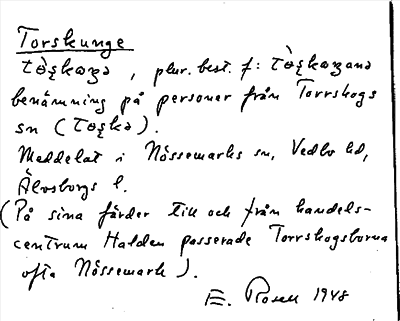 Torskunge
tò̤ʂkaʒa, plur. best. f: tò̤ʂkaʒana
benämning på personer från Torrskogs
sn (Toʂka).
Meddelat i Nössemarks sn, Vedbo hd,
Älvsborgs l.
(På sina färder till och från handels-
centrum Halden passerade Torrskogsborna
ofta Nössemark).
E. Rosell 1948